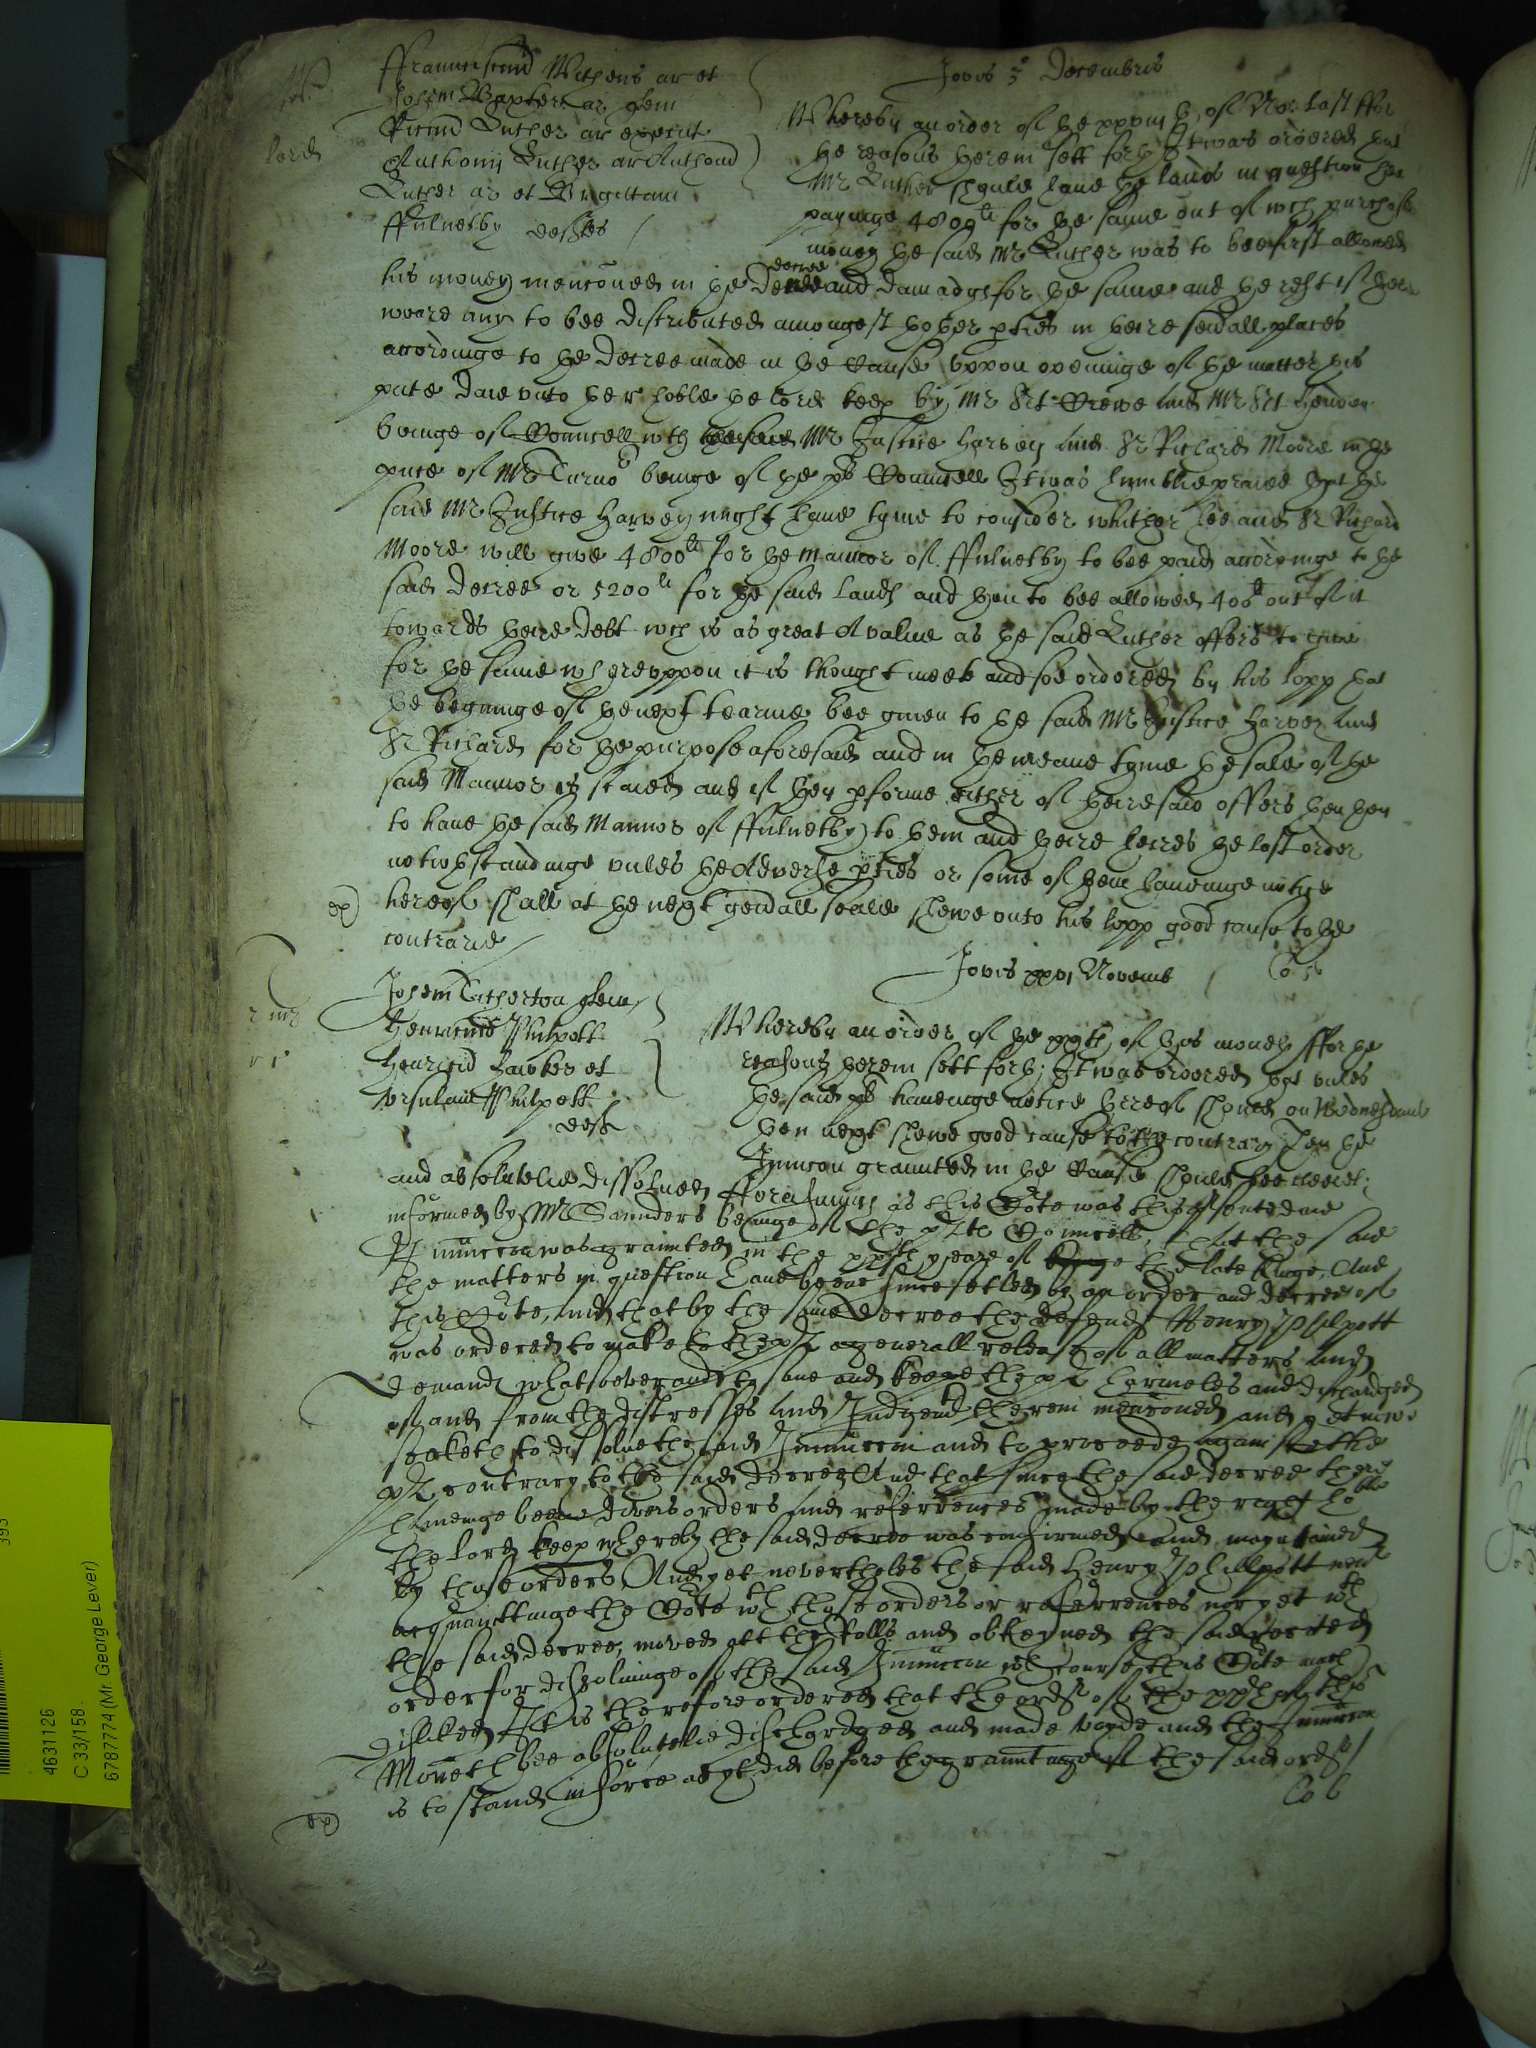 Jovis 3º Decembris
ffranciscum Withens ar et
Johem Baxter ar quer
Ricum Luther ar execut
Anthonij Luther ar Anthoniu
Luther ar et Brigittam
ffulnetby defts
Whereby an order of the xxvith of No: last ffor
the reasons therein sett forth It was ordered that
Mr Luther should have the lands in question hee
payinge 4800li for the same out of wch purchase
money the said Mr Luther was to bee first allowed
his money menconed in the decree and damadges for the same and the rest if there
weare any to bee distributed amongest thother pties in theire seuall places
accordinge to the decree made in the Cause Uppon openinge of the matter this
pnte daie unto the r: hoble the lord keep by Mr Srt Crewe and Mr Srt Henden
beinge of Councell wth Mr Justice Harvey and Sr Richard Moore in the
pnce of Mr Turnor beinge of the pl Councell It was humblie praied that the
said Mr Justice Harvey might have tyme to consider whither hee and Sr Richard
Moore will give 4800li for the Mannor of ffulnetby to bee paid accordinge to the
said decree or 5200li for the said lands and then to bee allowed 400li out of it
towards theire debt wch is as great A value as the said Luther offers to give
for the same whereuppon it is thought meete and soe ordered by his lopp that
the begininge of the next tearme bee given to the said Mr Justice Harvey and
Sr Richard for the purpose aforesaid and in the meane tyme the sale of the
said Mannor is staied and if they pforme either of theire said offers then they
to have the said Mannor of ffulnetby to them and theire heires the last order
notwthstandinge unles the Adverse pties or some of them haveinge notice
hereof shall at the next genall seale shewe unto his lopp good cause to the
contrarie
Jovis xxvj Novemb
Johem Catherton quer
Henricum Philpott
Henricu Hawkes et
Ursulam Philpott
deft
Whereby an order of the xxth of this moneth ffor the
reasons therein sett forth; It was ordered that unles
the said pl haveinge notice thereof should on Wednesdaie
then next shewe good cause to the contrary then the
Iniuccon graunted in the Cause should bee cleerely
and absolutelie dissolued fforasmuch as this Cote was this psente daie
informed by Mr Saunders beinge of the plts Councell, that the said
Iniuccon was graunted in the yeare of the late Kinge, And
the matters in question have beene since setled by an order and decree of
this Cote, and that by the same decree the defendt Henry Philpott
was ordered to make to the pl a generall release of all matters and
demands whatsoever and to save and keepe the pl harmeles and dischardged
of and from the distresses and Iudgemts therein menconed and yet now
seeketh to dissolve the said Iniuccon and to proceede against the
pl contrary to the said decree And that since the said decree there
haveinge beene divers orders and referrences made by the right hoble
the lord keep whereby the said decree was confirmed and mayntained
by those orders, And yet neverthles the said Henry Phillpott not
acquaintinge the Cote wth those orders or referrences nor yet wth
the said decree, moved att the Rolls and obteyned the said recited
order for dissolvinge of the said Iniuccon wch course this Cote much
disliked It is therefore ordered that the order of the xxth of this
Moneth bee absolutelie dischardged and made voyde and the Iniuccon
is to stand in force as yt did before the grauntinge of the said order
4631126
C 33/158
6787774 (Mr. George Lever)